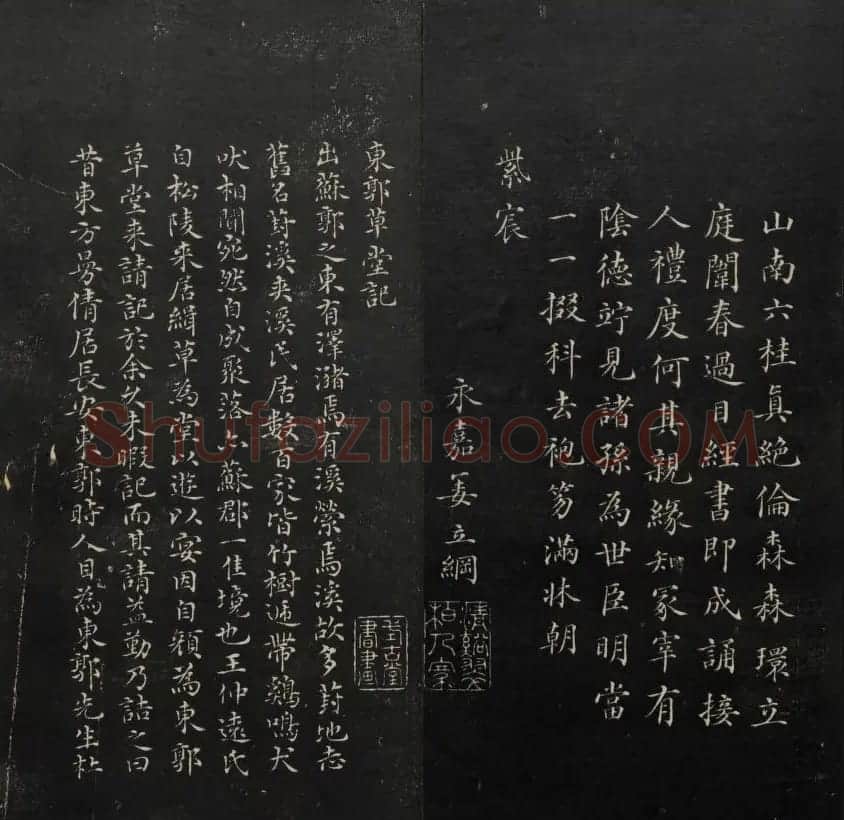 山南六桂真絶倫森森環立
庭闈春過目經書即成誦接
人禮度何其親緣知冢宰有
陰德竚見諸孫為世臣明當
一一掇科去袍笏滿牀朝
紫宸
永嘉姜立綱
東郭草堂記
出蘇郭之東有澤瀦焉有溪縈焉溪故多葑地志
舊名葑溪夾溪民居數百家皆竹樹遞帶鷄鳴犬
吠相聞宛然自成聚落亦蘇郡一佳境也王仲遠氏
自松陵來居緝草為堂以遊以宴因自額為東郭
草堂来請記於余久未暇記而其請益勤乃詰之曰
昔東方曼倩居長安東郭時人目為東郭先生杜
书畫
Shufaziliao.COM